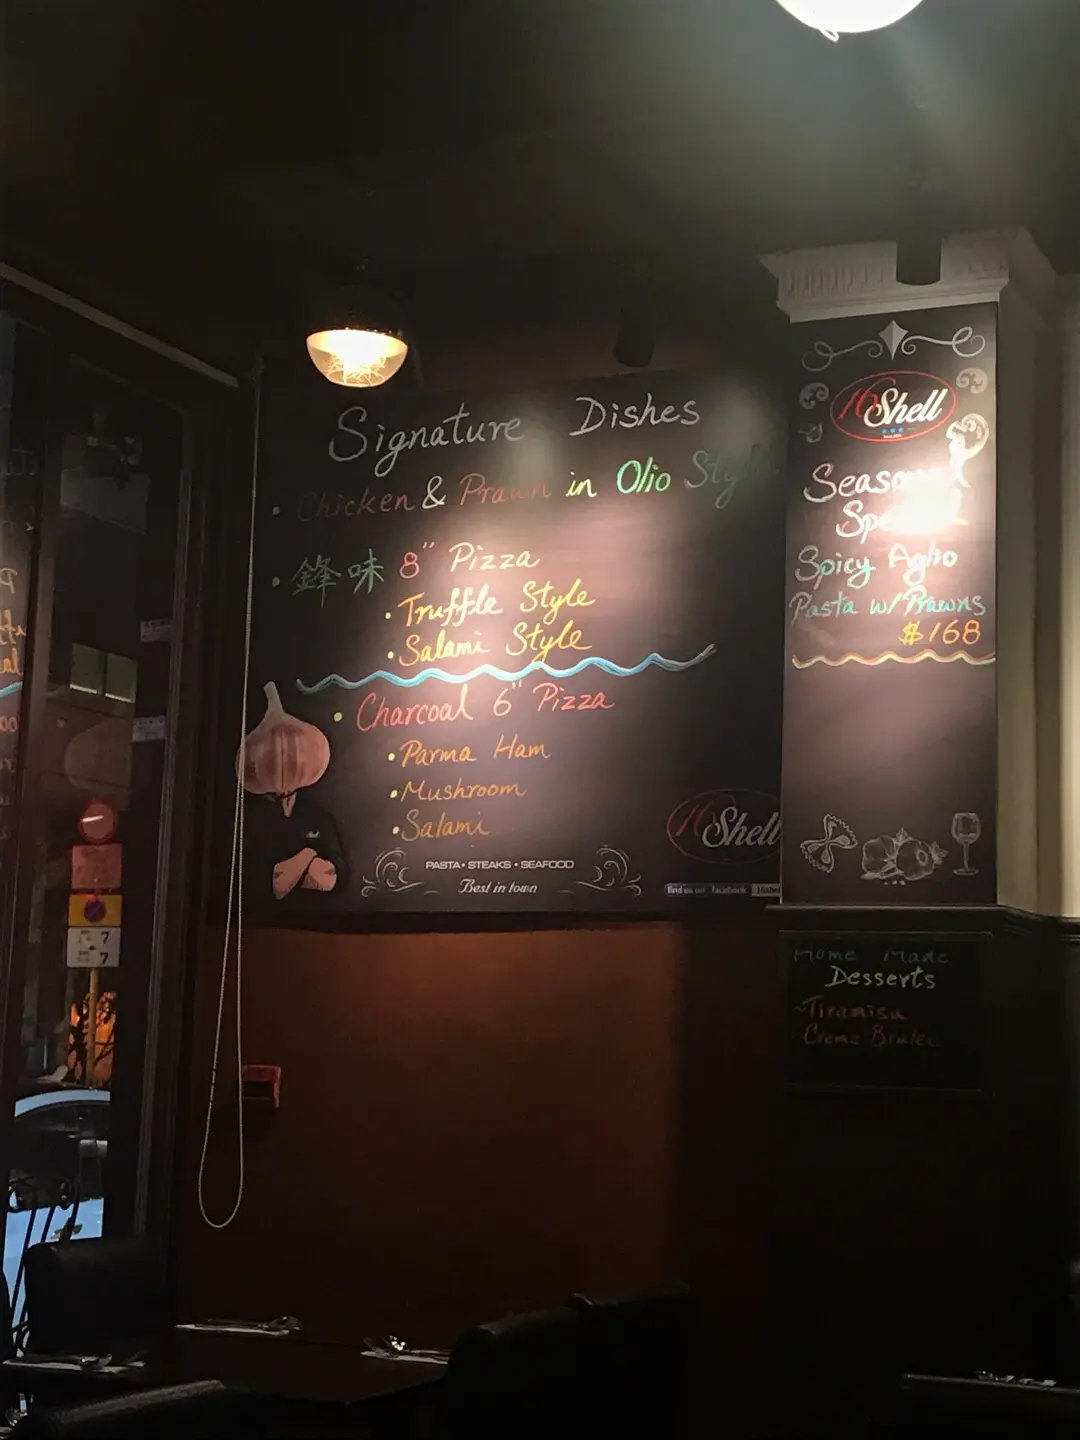 Signature Dishes
• Chicken & Prawn in Olio Style
• 鋒味 8" Pizza
• Truffle Style
• Salami Style
• Charcoal 6" Pizza
• Parma Ham
• Mushroom
• Salami
PASTA • STEAKS • SEAFOOD
Best in town
16 Shell
find us on facebook
16 Shell
Seasonal
Special
Spicy Aglio
Pasta w/ Prawns
$168
Home Made
Desserts
-Tiramisu
Creme Brulee
7
7